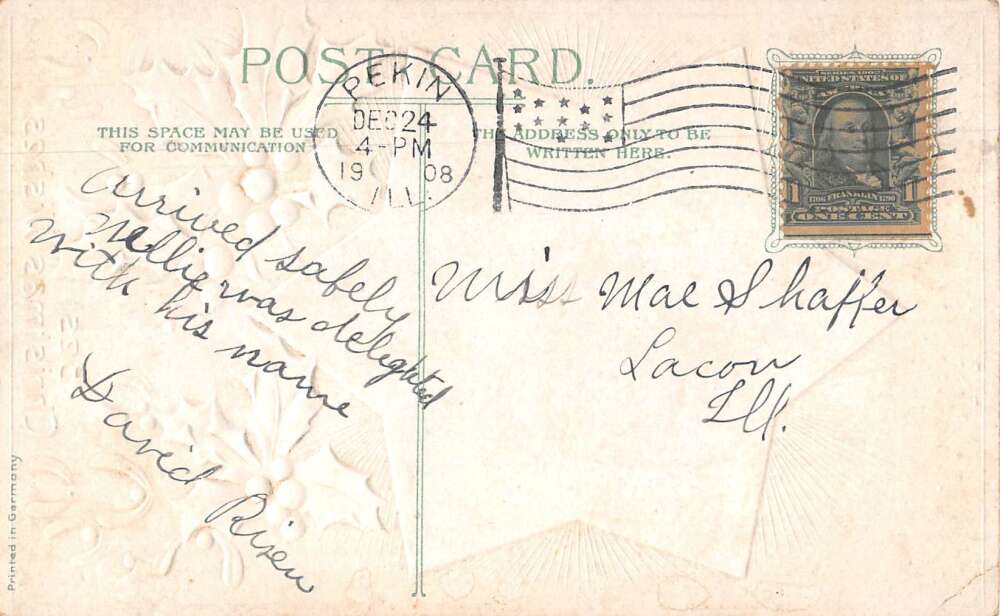 POST CARD.
THIS SPACE MAY BE USED
FOR COMMUNICATION
THE ADDRESS ONLY TO BE
WRITTEN HERE.
PEKIN
DEC 24
4-PM
19 08
ILL.
SERIES 1902
UNITED STATES OF
AMERICA
1 1
1706 FRANKLIN 1790
POSTAGE
ONE CENT
Arrived safely
Nellie was delighted
with his name
David Risen
Miss Mae Shaffer
Lacon
Ill.
Printed in Germany